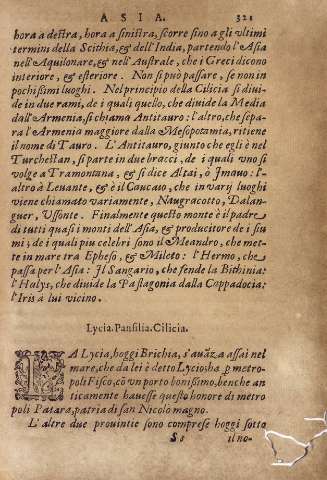 ASIA. 321
hora a destra, hora a sinistra, scorre sino a gli vltimi
termini della Scithia, & dell'India, partendo l'Asia
nell'Aquilonare, & nell'Australe, che i Greci dicono
interiore, & esteriore. Non si può passare, se non in
pochissimi luoghi. Nel principio della Cilicia si diui-
de in due rami, de i quali quello, che diuide la Media
dall'Armenia, si chiama Antitauro: l'altro, che sepa-
ra l'Armenia maggiore dalla Mesopotamia, ritiene
il nome di Tauro. L'Antitauro, giunto che egli è nel
Turchestan, si parte in due bracci, de i quali vno si
volge a Tramontana, & si dice Altai, ò Imauo: l'al-
tro è Leuante, & è il Caucaso, che in vary luoghi
viene chiamato variamente, Naugracotto, Dalan-
guer, Vssonte. Finalmente questo monte è il padre
di tutti quasi i monti dell'Asia, & producitore de i fiu
mi, de i quali piu celebri sono il Meandro, che met-
te in mare tra Epheso, & Mileto: l'Hermo, che
passa per l'Asia: Il Sangario, che fende la Bithinia:
l'Halys, che diuide la Paflagonia dalla Cappadocia:
l'Iris a lui vicino.
Lycia. Panfilia. Cilicia.
LA Lycia, hoggi Brichia, s'auāza assai nel
mare, che da lei è detto Lycio: ha ꝑ metro-
poli Fisco, cō vn porto bonissimo, benche an
ticamente hauesse questo honore di metro
poli Patara, patria di san Nicolo magno.
L'altre due prouintie sono comprese hoggi sotto
Ss il no-